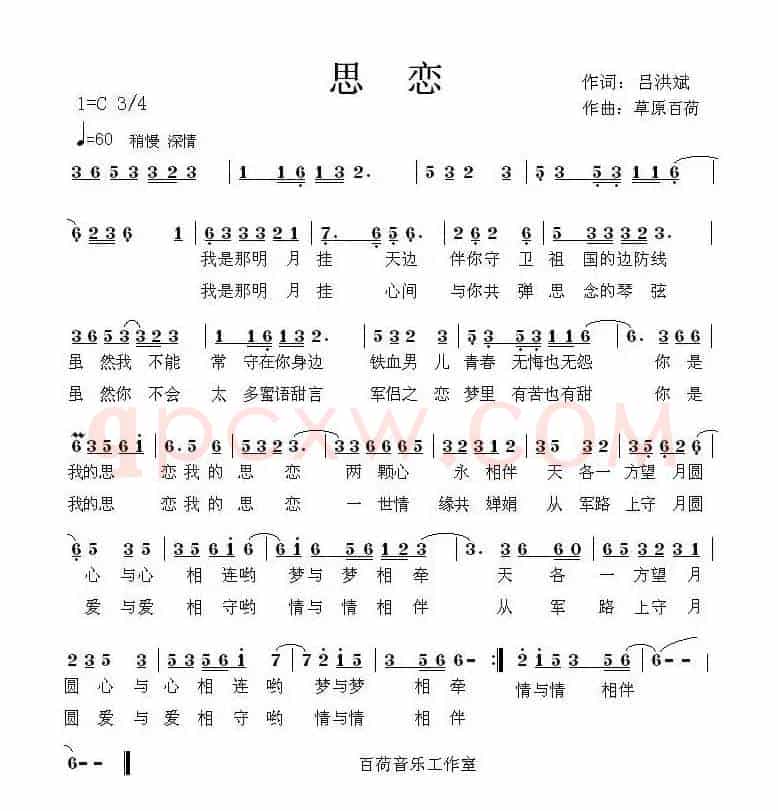 思 恋
作词：吕洪斌
1=C 3/4
作曲：草原百荷
♩=60 稍慢 深情
3 6 5 3 3 2 3 | 1 1 6 1 3 2. | 5 3 2 3 | 5 3 5 3 1 1 6 |
6 2 3 6 1 | 6 3 3 3 2 1 | 7. 6 5 6. | 2 6 2 6 | 6 3 5 3 3 3 2 3 |
我是那明 月 挂 天边 伴你守 卫 祖 国的边防线
我是那明 月 挂 心间 与你共 弹 思 念的琴弦
3 6 5 3 2 3 | 1 1 6 1 3 2. | 5 3 2 3 | 5 3 5 3 1 1 6 | 6. 3 6 6 |
虽 然我 不能 常 守在你身边 铁血男 儿 青春 无悔也无怨 你 是
虽 然你 不会 太 多蜜语甜言 军侣之 恋 梦里 有苦也有甜 你 是
6 3 5 6 i | 6. 5 6 | 5 3 2 3. | 3 3 5 6 6 5 | 3 2 3 1 2 | 3. 3 5 | 3 5 6 2 6 |
我的思 恋我 的 思 恋 两 颗心 永 相伴 天 各一 方望 月圆
我的思 恋我 的 思 恋 一 世情 缘共 婵娟 从 军路 上守 月圆
qpcxw.COM
6 5 3 | 2 3. 5 | 3 5 6 i 6 | 6 3 5 6 1 2 3 | 3. 3 6 6 0 | 5 5 3 2 3 1 |
心 与心 相 连哟 梦与 梦 相 牵 天 各 一 方望 月
爱 与爱 相 守哟 情与 情 相 伴 从 军 路 上守 月
2 3 5 3 5 | 3 5 5 6 i 7 | 7 2 i 5 3 5 6 | 6 - - :| 2 i 5 3 5 6 | 6 - - |
圆 心 与 心 相 连 哟 梦与梦 相 牵 情与情 相伴
圆 爱 与 爱 相 守 哟 情与情 相 伴
6 - - ‖
百荷音乐工作室